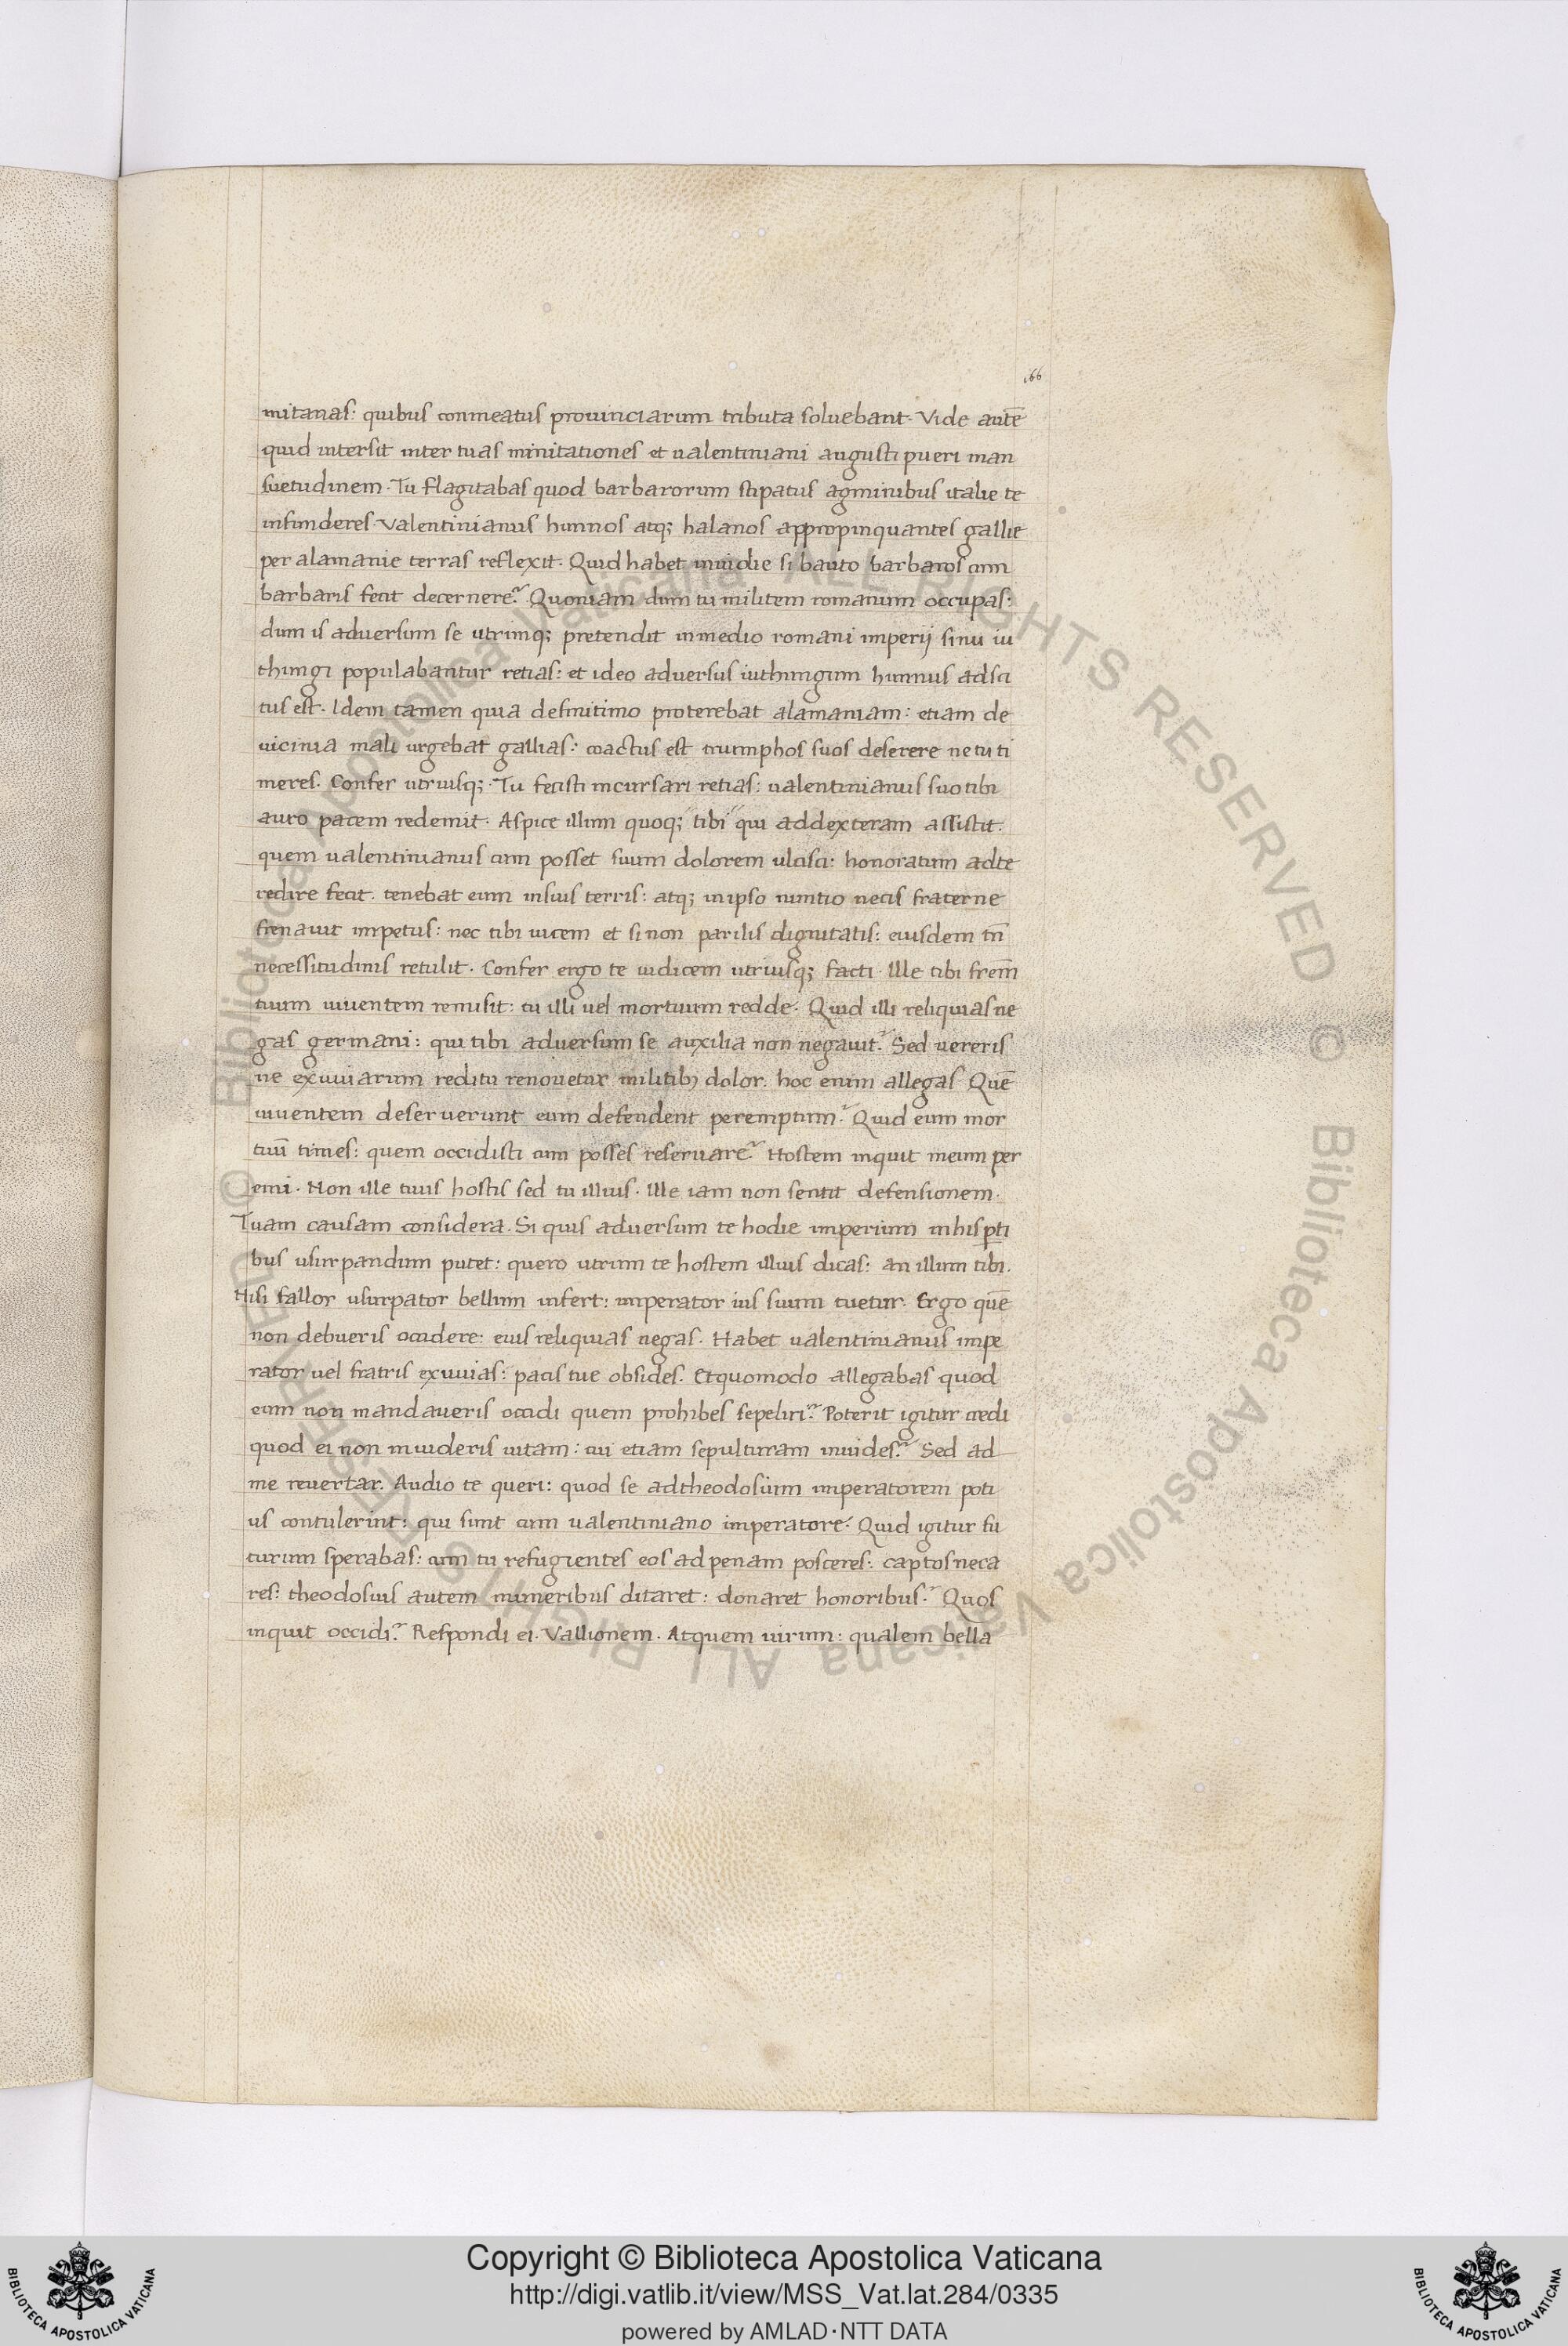 166
mitanas: quibus conmeatus prouinciarum tributa soluebant. Vide autē
quid intersit inter tuas minitationes et ualentiniani augusti pueri man
suetudinem. Tu flagitabas quod barbarorum stipatus agminibus italie te
infunderes. Valentinianus hunnos atq; halanos appropinquantes gallie
per alamanie terras reflexit. Quid habet inuidie si bauto barbaros cum
barbaris fecit decernere? Quoniam dum tu militem romanum occupas:
dum is aduersum se utrimq; pretendit in medio romani imperij sinu iu
thungi populabantur retias: et ideo aduersus iuthungum hunnus adsci
tus est. Idem tamen quia definitimo proterebat alamaniam: etiam de
uicinia mali urgebat gallias: coactus est triumphos suos deserere ne tu ti
meres. Confer utriusq;. Tu fecisti incursari retias: ualentinianus suo tibi
auro pacem redemit. Aspice illum quoq; tibi qui addexteram assistit.
quem ualentinianus cum posset suum dolorem ulcisci: honoratum adte
redire fecit. tenebat eum insuis terris: atq; inipso nuntio necis fraterne
frenauit impetus: nec tibi uicem et si non parilis dignitatis: eiusdem tn̄
necessitudinis retulit. Confer ergo te iudicem utriusq; facti. Ille tibi frem̄
tuum uiuentem remisit: tu illi uel mortuum redde. Quid illi reliquias ne
gas germani: qui tibi aduersum se auxilia non negauit? Sed uereris
ne exuuiarum reditu renouetur militib; dolor. hoc enim allegas Quē
uiuentem deseruerunt eum defendent peremptum? Quid eum mor
tuū times: quem occidisti cum posses reseruare? Hostem inquit meum per
emi. Non ille tuus hostis sed tu illius. Ille iam non sentit defensionem.
Tuam causam considera. Si quis aduersum te hodie imperium inhis ꝑti
bus usurpandum putet: quero utrum te hostem illius dicas: an illum tibi.
Nisi fallor usurpator bellum infert: imperator ius suum tuetur. Ergo quē
non debueris occidere: eius reliquias negas. Habet ualentinianus impe
rator uel fratris exuuias: pacis tue obsides. Et quomodo allegabas quod
eum non mandaueris occidi quem prohibes sepeliri? Poterit igitur credi
quod ei non inuideris uitam: cui etiam sepulturam inuides? Sed ad
me reuertar. Audio te queri: quod se adtheodosium imperatorem poti
us contulerint: qui sunt cum ualentiniano imperatore. Quid igitur fu
turum sperabas: cum tu refugientes eos ad penam posceres: captos neca
res: theodosius autem muneribus ditaret: donaret honoribus? Quos
inquit occidi? Respondi ei. Vallionem. Atquem uirum: qualem bella
Copyright © Biblioteca Apostolica Vaticana
http://digi.vatlib.it/view/MSS_Vat.lat.284/0335
powered by AMLAD·NTT DATA
BIBLIOTECA APOSTOLICA VATICANA
BIBLIOTECA APOSTOLICA VATICANA
© Biblioteca Apostolica Vaticana ALL RIGHTS RESERVED
© Biblioteca Apostolica Vaticana ALL RIGHTS RESERVED